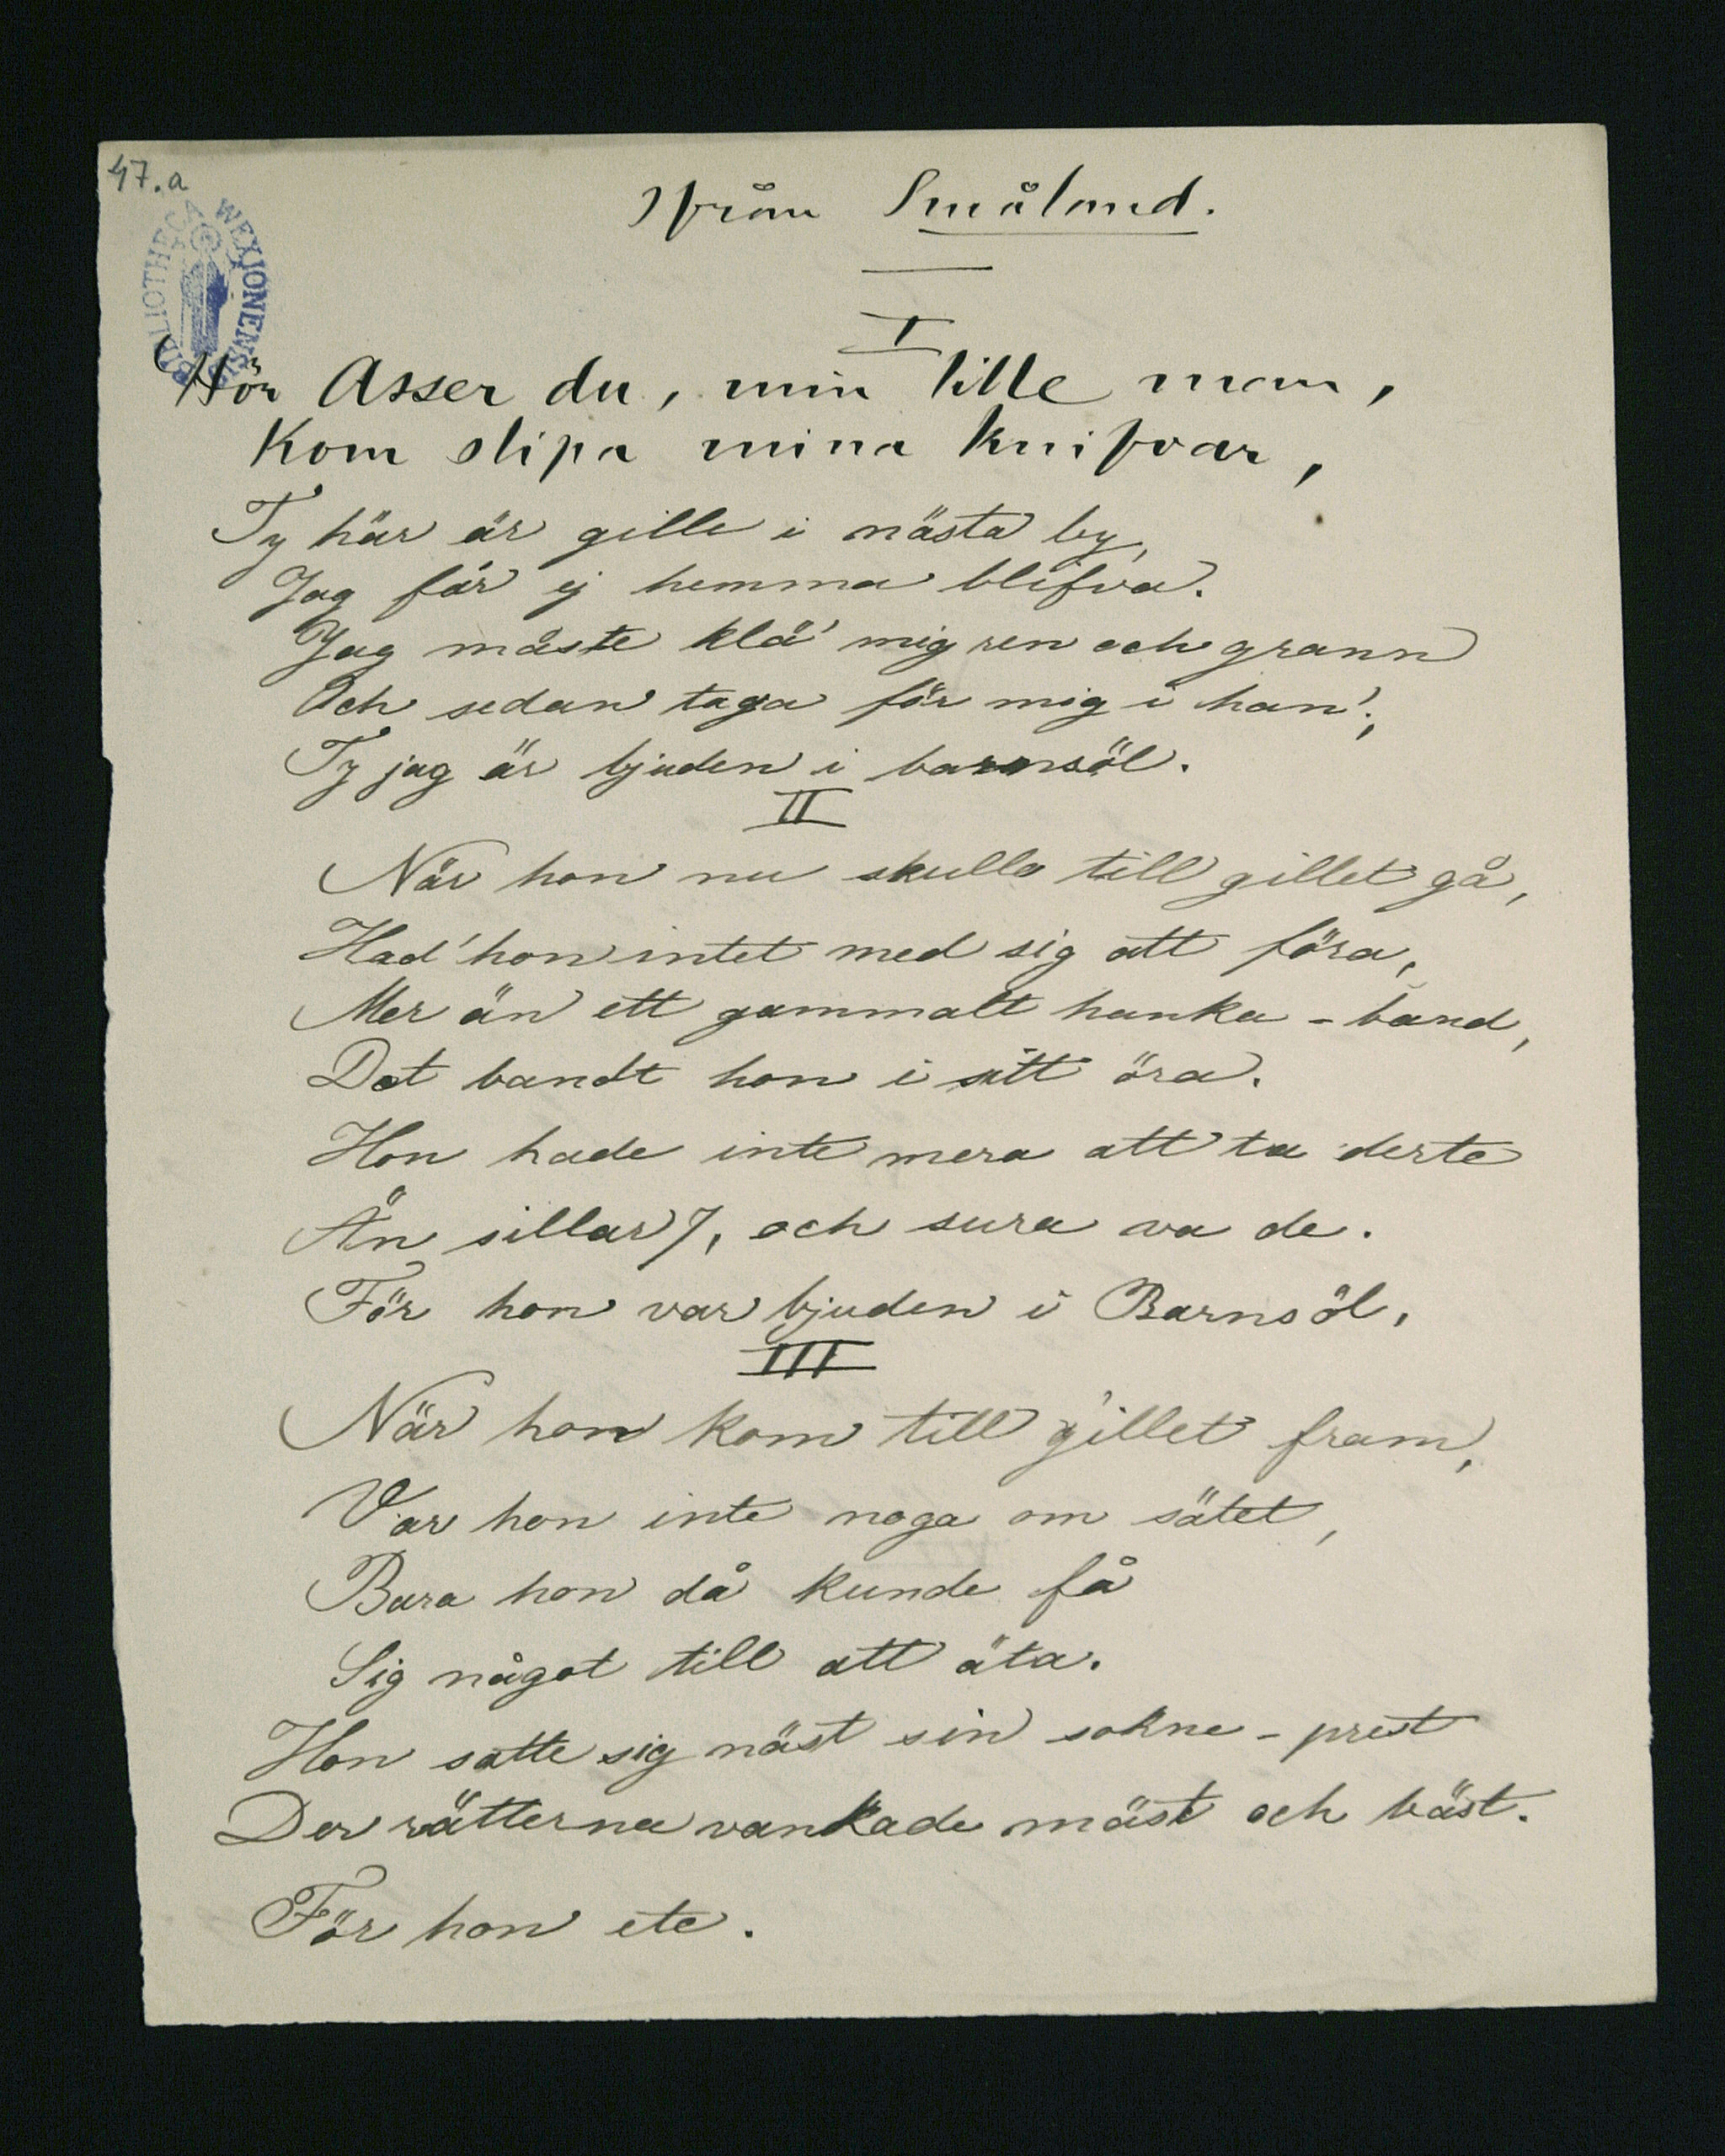 47.a
BIBLIOTHECA WEXIONENSIS
Ifrån Småland.
I
Hör Asser du, min lille man,
Kom slipa mina knifvar,
Ty här är gille i nästa by,
Jag får ej hemma blifva.
Jag måste klä' mig ren och grann
Och sedan taga för mig i han';
Ty jag är bjuden i barnsöl.
II
När hon nu skulle till gillet gå,
Had' hon intet med sig att föra,
Mer än ett gammalt hanka-band,
Det bandt hon i sitt öra.
Hon hade inte mera att ta derte
Än sillar 7, och sura va de.
För hon var bjuden i Barnsöl.
III
När hon kom till gillet fram,
Var hon inte noga om sätet,
Bara hon då kunde få
Sig något till att äta.
Hon satte sig näst sin sokne-prest
Der rätterna vankade mäst och bäst.
För hon etc.